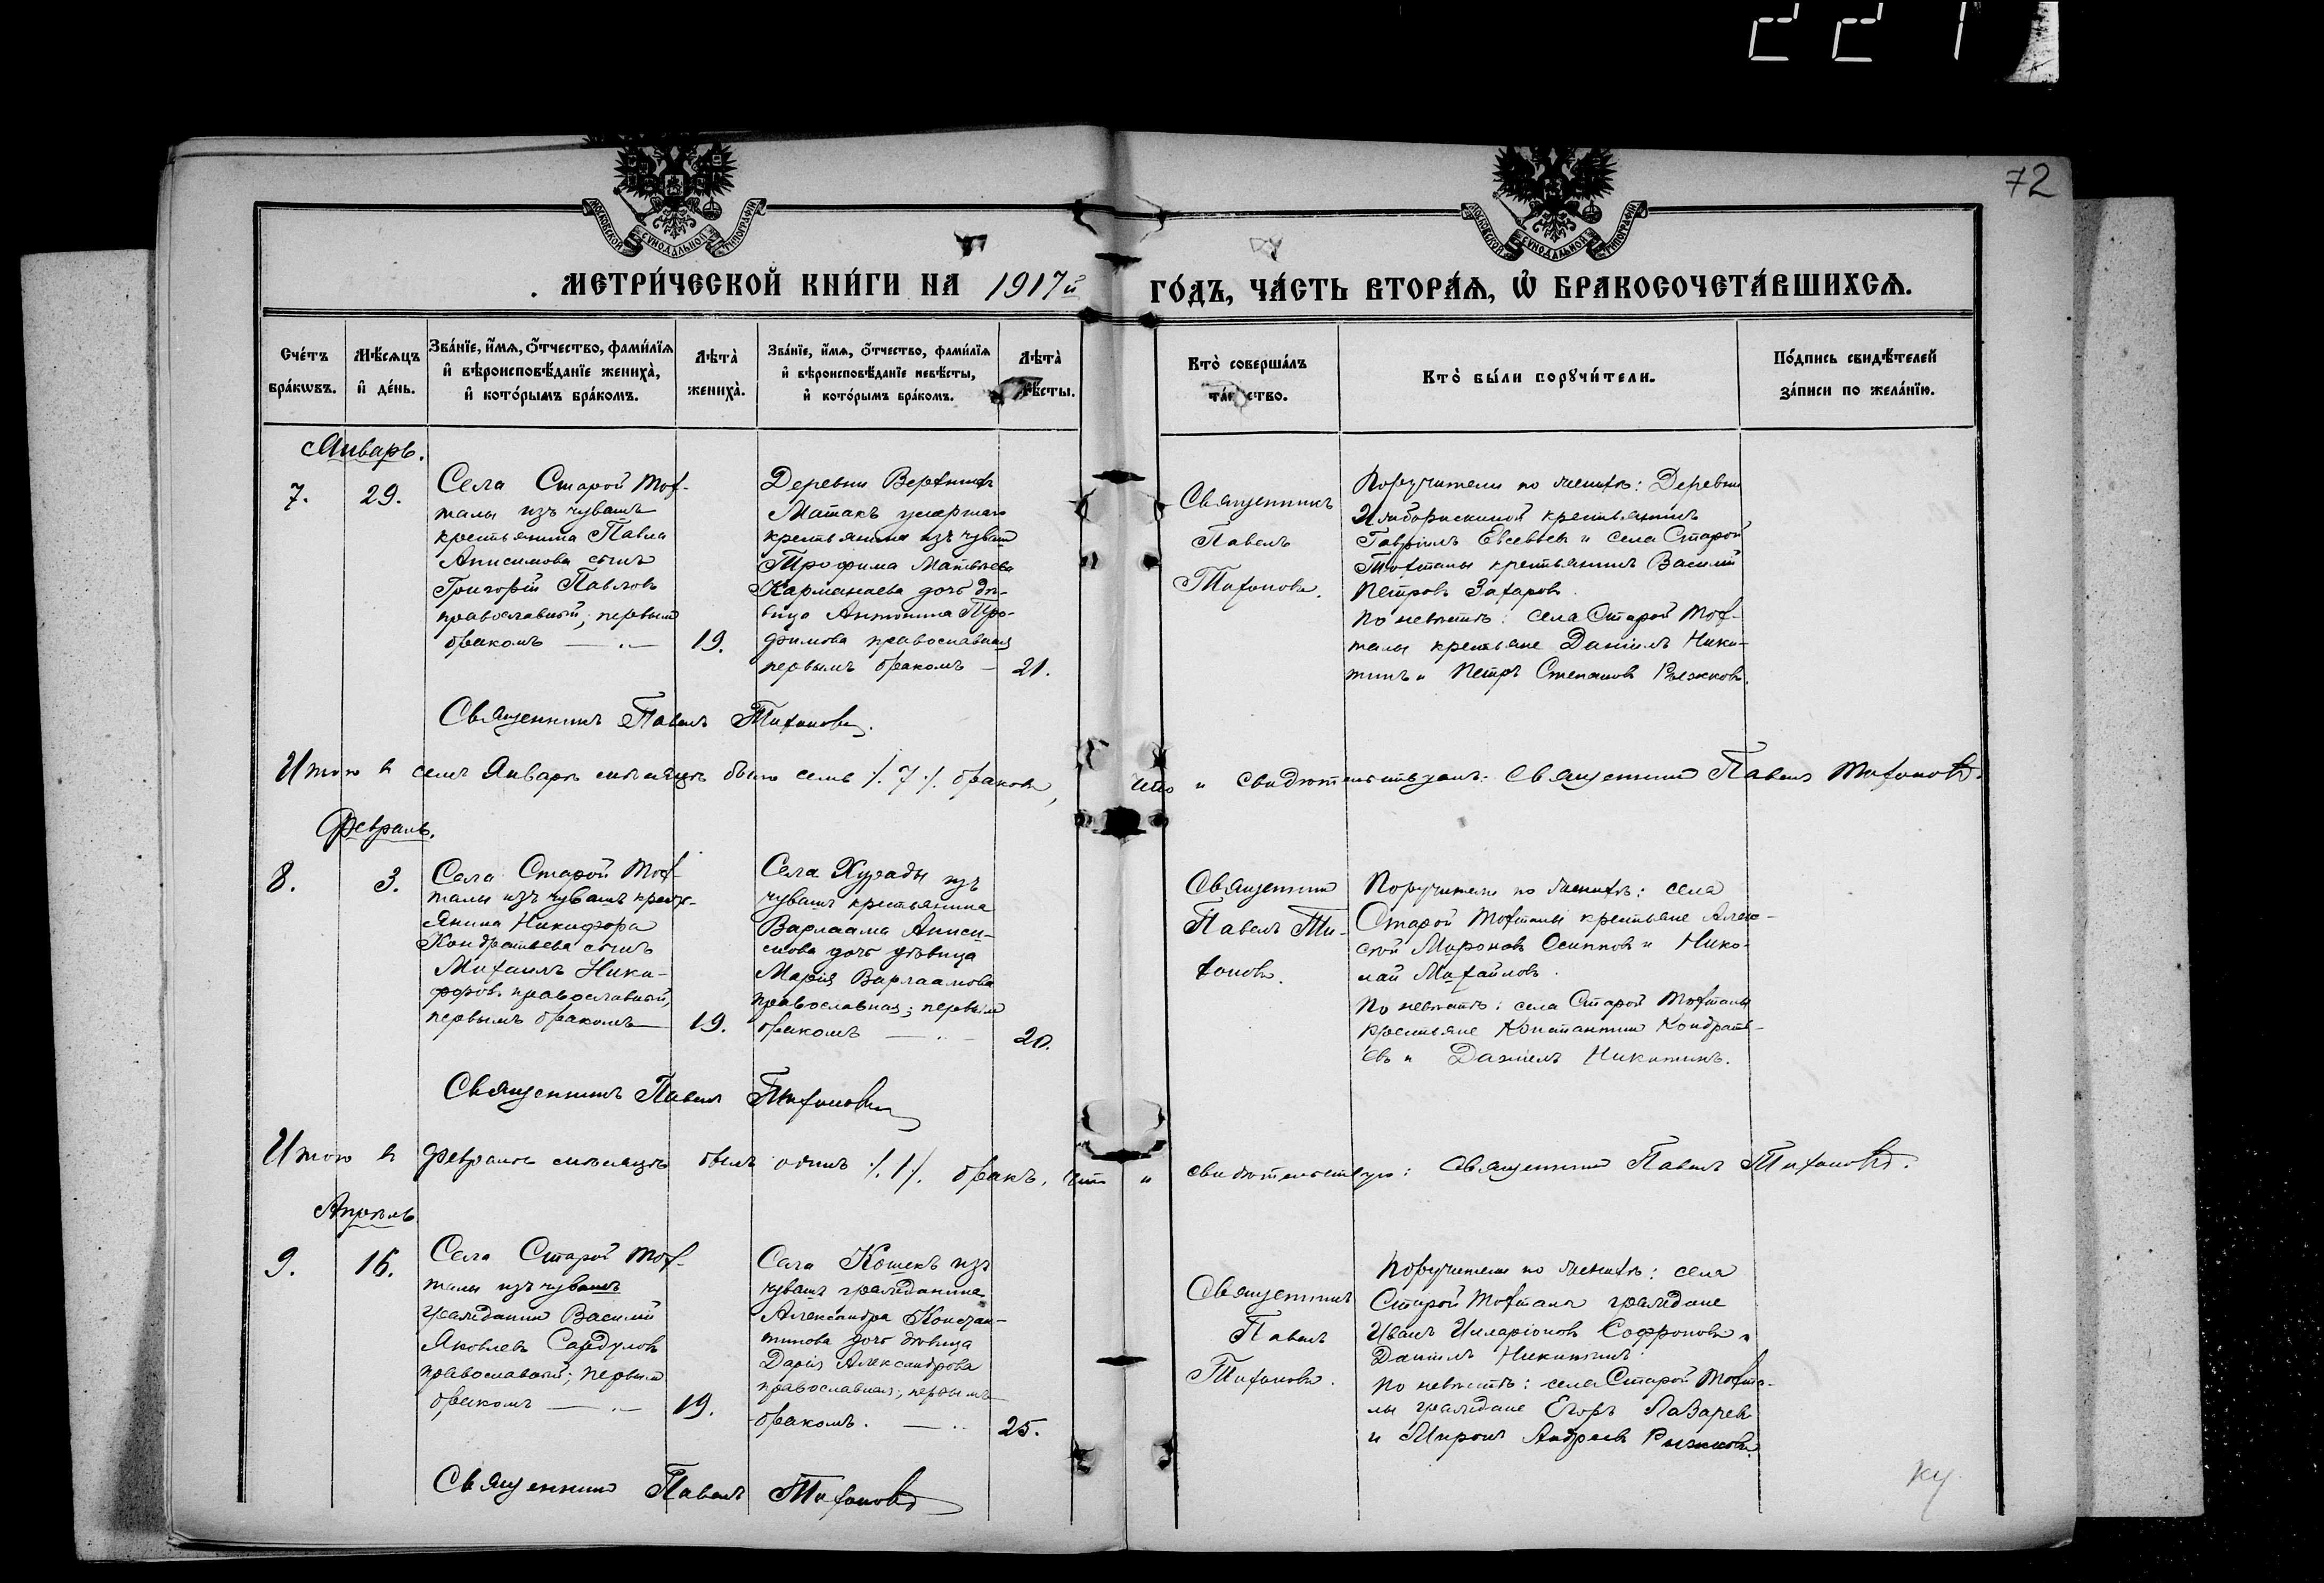 221
72
МОСКОВСКОЙ СѴНОДАЛЬНОЙ ТИПОГРАФІИ
МОСКОВСКОЙ СѴНОДАЛЬНОЙ ТИПОГРАФІИ
МЕТРИ́ЧЕСКОЙ КНИ́ГИ НА 1917й ГО́ДЪ, ЧА́СТЬ ВТОРА́Ѧ, Ѽ БРАКОСОЧЕТА́ВШИХСѦ.
Сче́тъ
бра́кѡвъ.
Мѣ́сѧцъ
и҆ де́нь.
Зва́нїе, и҆́мѧ, ѻ҆́тчество, фами́лїѧ
и҆ вѣроисповѣ́данїе жениха̀,
и҆ кото́рымъ бра́комъ.
Лѣта̀
жениха̀.
Зва́нїе, и҆́мѧ, ѻ҆́тчество, фами́лїѧ
и҆ вѣроисповѣ́данїе невѣ́сты,
и҆ кото́рымъ бра́комъ.
Лѣта̀
невѣ́сты.
Кто̀ соверша́лъ
та́инство.
Кто̀ бы́ли порꙋчи́тели.
По́дпись свидѣ́телей
за́писи по жела́нїю.
Январь.
7.
29.
Села Старой Тох-
талы изъ чувашъ
крестьянина Павла
Анисимова сынъ
Григорій Павловъ
православный; первымъ
бракомъ — . —
19.
Деревни Верхнихъ
Матакъ умершаго
крестьянина изъ чувашъ
Трофима Матвѣева
Карманаева дочь дѣ-
вица Антонина Тро-
фимова православная
первымъ бракомъ —
21.
Священникъ
Павелъ
Тихоновъ.
Поручители по женихѣ: Деревни
крестьянинъ
Гавріилъ Евсевьевъ и села Старой
Тохталы крестьянинъ Василій
Петровъ Захаровъ.
по невѣстѣ: села Старой Тох-
талы крестьяне Даніилъ Ники-
тинъ и Петръ Степановъ Рыжковъ.
Священникъ Павелъ Тихоновъ.
Итого въ семъ Январѣ мѣсяцѣ было семь /. 7 /. браковъ, что и свидѣтельствуемъ: Священникъ Павелъ Тихоновъ.
Февраль.
8.
3.
Села Старой Тох-
талы изъ чувашъ кресть-
янина Никифора
Кондратьева сынъ
Михаилъ Ники-
форовъ православный,
первымъ бракомъ —
19.
Села Хурады изъ
чувашъ крестьянина
Варлаама Аниси-
мова дочь дѣвица
Марія Варлаамова
православная; первымъ
бракомъ — . —
20.
Священникъ
Павелъ Ти-
хоновъ.
Поручители по женихѣ: села
Старой Тохталы крестьяне Алек-
сѣй Мироновъ Осиповъ и Нико-
лай Михайловъ.
по невѣстѣ: села Старой Тохталы
крестьяне Константинъ Кондрать-
евъ и Даніилъ Никитинъ.
Священникъ Павелъ Тихоновъ
Итого въ Февралѣ мѣсяцѣ былъ одинъ /. 1 /. бракъ, что и свидѣтельствую: Священникъ Павелъ Тихоновъ.
Апрѣль
9.
16.
Села Старой Тох-
талы изъ чувашъ
гражданинъ Василій
Яковлевъ Сардуловъ
православный; первымъ
бракомъ — . —
19.
Села Кошекъ изъ
чувашъ гражданина
Александра Констан-
тинова дочь дѣвица
Дарія Александрова
православная; первымъ
бракомъ. — ..
25.
Священникъ
Павелъ
Тихоновъ.
Поручители по женихѣ: села
Старой Тохталы граждане
Иванъ Илларіоновъ Софроновъ и
Даніилъ Никитинъ.
по невѣстѣ: села Старой Тохта-
лы граждане Егоръ Лазаревъ
и Миронъ Андреевъ Рыжковъ.
Священникъ Павелъ Тихоновъ